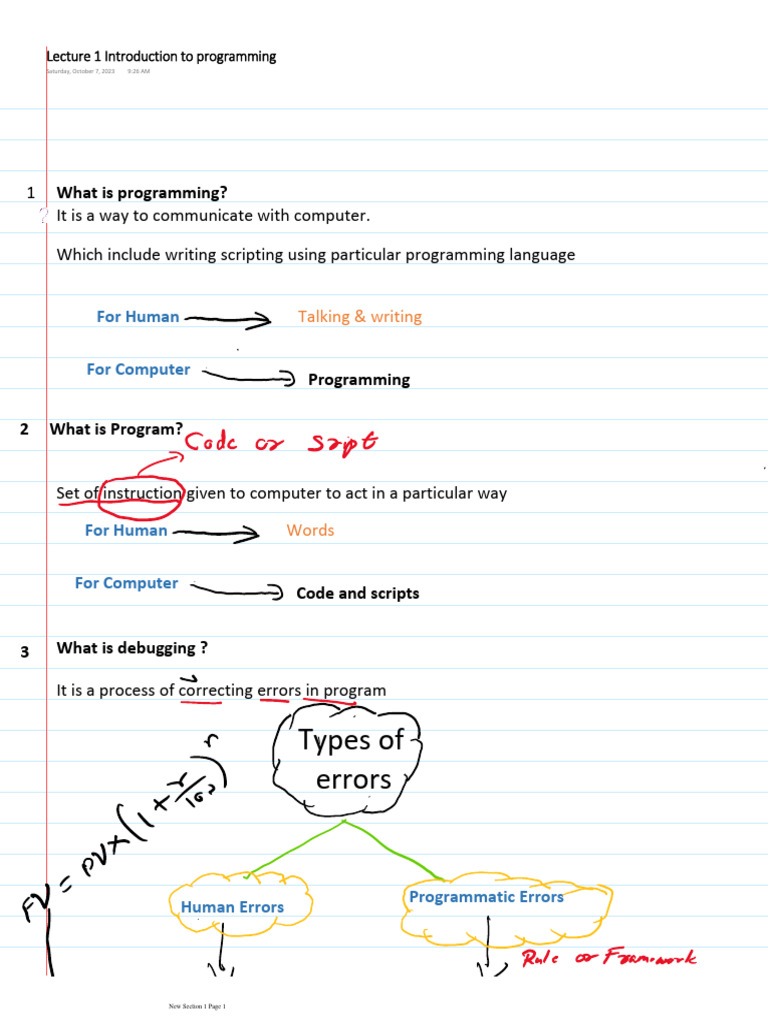 Lecture 1 Introduction to programming
Saturday, October 7, 2023 9:26 AM
1 What is programming?
? It is a way to communicate with computer.
Which include writing scripting using particular programming language
For Human Talking & writing
For Computer Programming
2 What is Program?
Code or Sript
Set of instruction given to computer to act in a particular way
For Human Words
For Computer Code and scripts
3 What is debugging ?
It is a process of correcting errors in program
Types of
errors
FV = PV x (1 + r/100)^n
Human Errors
Programmatic Errors
Rule or Framework
New Section 1 Page 1